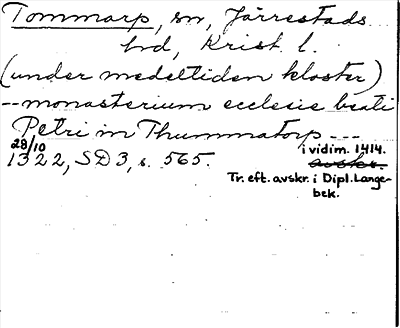 Tommarp, sn, Järrestads
hd, Krist. l.
(under medeltiden kloster)
-- monasterium ecclesie beati
Petri in Thummatorp ---
28/10
1322, SD3, s. 565.
i vidim. 1414.
avskr.
Tr. eft. avskr. i Dipl. Lange-
bek.